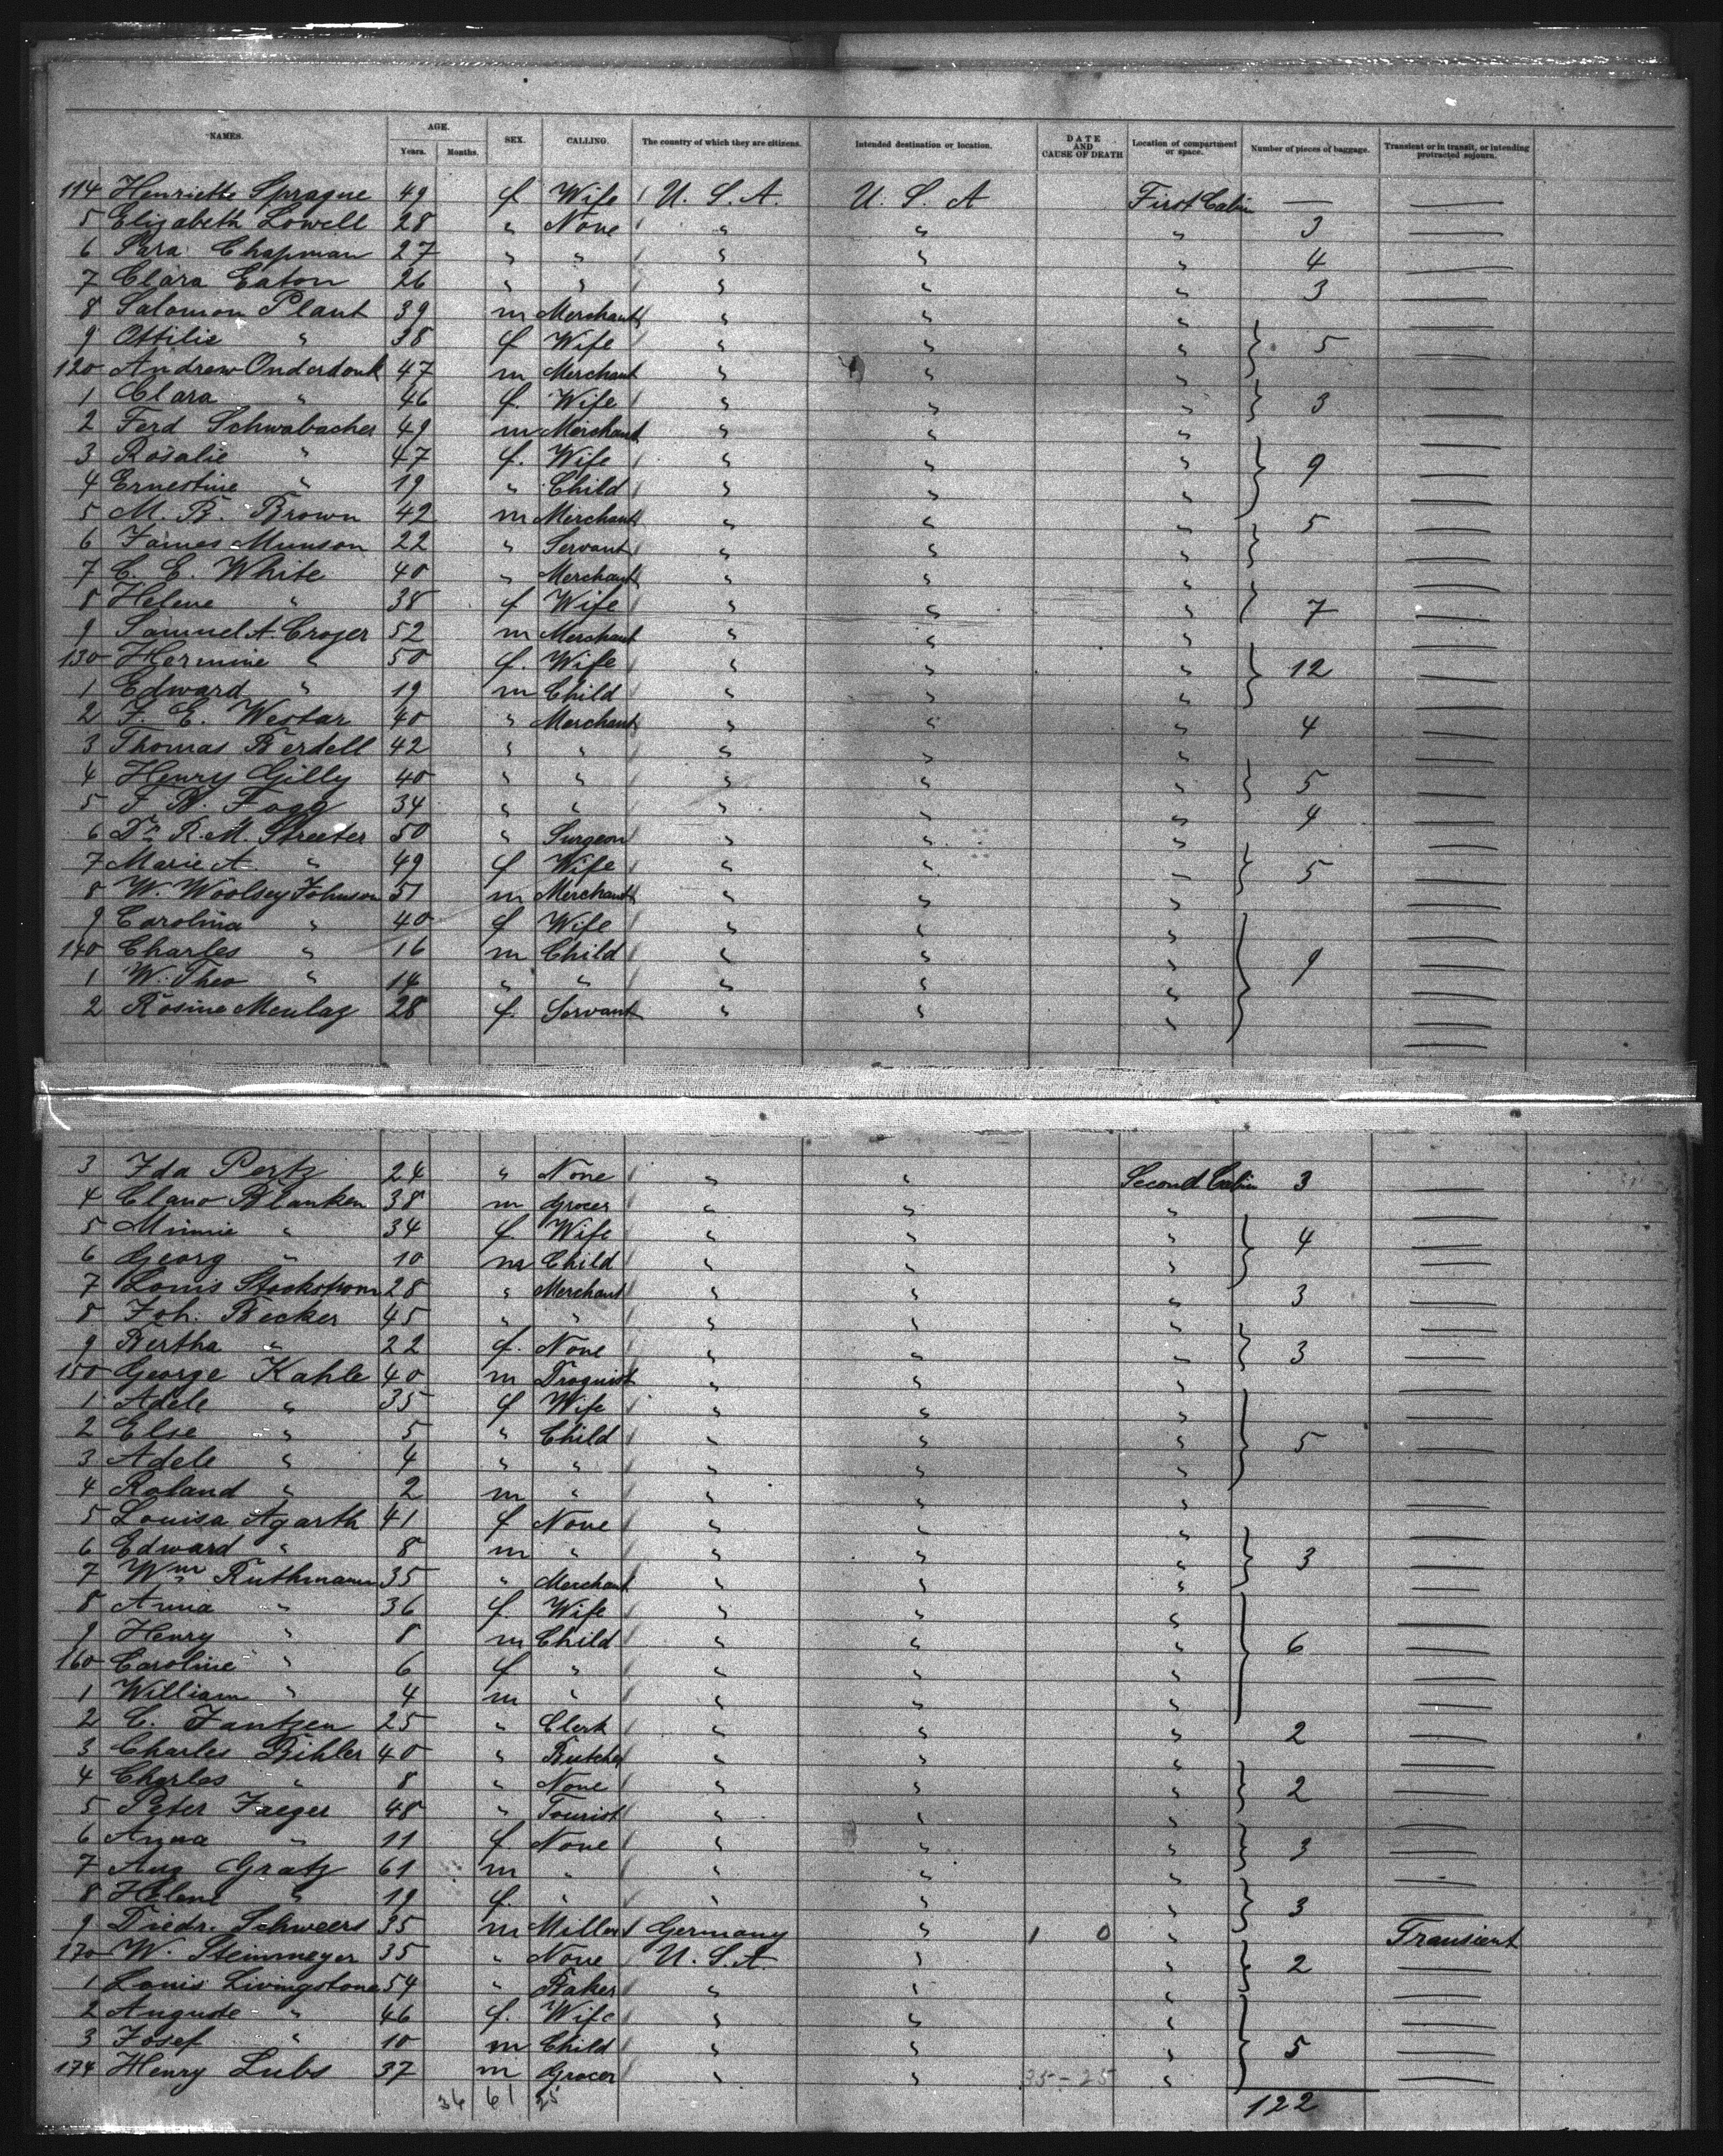 NAMES. AGE. SEX. CALLING. The country of which they are citizens. Intended destination or location. DATE AND CAUSE OF DEATH Location of compartment or space. Number of pieces of baggage. Transient or in transit, or intending protracted sojourn.
Years. Months.
114 Henriette Sprague 49 f Wife U. S. A. U. S. A First Cabin —
5 Elizabeth Lowell 28 " None " " " 3
6 Sara Chapman 27 " " " " " 4
7 Clara Eaton 26 " " " " " 3
8 Salomon Plaut 39 m Merchant " " "
9 Ottilie " 38 f Wife " " " 5
120 Andrew Onderdonk 47 m Merchant " " "
1 Clara " 46 f. Wife " " " 3
2 Ferd Schwabacher 49 m Merchant " " "
3 Rosalie " 47 f. Wife " " " 9
4 Ernestine " 19 " Child " " "
5 M. B. Brown 42 m Merchant " " " 5
6 James Munson 22 " Servant " " "
7 C. E. White 40 " Merchant " " "
8 Helene " 38 f Wife " " " 7
9 Samuel A. Crozer 52 m Merchant " " "
130 Hermine " 50 f. Wife " " " 12
1 Edward " 19 m Child " " "
2 F. E. Westar 40 " Merchant " " " 4
3 Thomas Berdell 42 " " " " "
4 Henry Gilly 40 " " " " " 5
5 F. B. Fogg 34 " " " " " 4
6 Dr. R. M. Streeter 50 " Surgeon " " "
7 Marie A. " 49 f Wife " " " 5
8 W. Woolsey Johnson 51 m Merchant " " "
9 Carolina " 40 f Wife " " "
140 Charles " 16 m Child " " " 9
1 W. Theo " 14 " " " " "
2 Rosine Meulaz 28 f. Servant " " "
3 Ida Pertz 24 " None " " Second Cabin 3
4 Claus Blanken 38 m Grocer " " "
5 Minnie " 34 f Wife " " " 4
6 Georg " 10 m Child " " "
7 Louis Stockstrom 28 " Merchant " " " 3
8 Joh. Becker 45 " " " " "
9 Bertha " 22 f. None " " " 3
150 George Kahle 40 m Droguist " " "
1 Adele " 35 f Wife " " "
2 Else " 5 " Child " " " 5
3 Adele " 4 " " " " "
4 Roland " 2 m " " " "
5 Louisa Agarth 41 f None " " "
6 Edward " 8 m " " " " 3
7 Wm Ruthmann 35 " Merchant " " "
8 Anna " 36 f. Wife " " "
9 Henry " 8 m Child " " " 6
160 Caroline " 6 f " " " "
1 William " 4 m " " " "
2 C. Jantzen 25 " Clerk " " " 2
3 Charles Bihler 40 " Butcher " " "
4 Charles " 8 " None " " " 2
5 Peter Jaeger 48 " Tourist " " "
6 Anna " 11 f. None " " " 3
7 Aug Gratz 61 m " " " "
8 Helene " 19 f. " " " " 3
9 Diedr. Schweers 35 m Miller Germany " 1 0 " Transient
170 W. Steinmeyer 35 " None U. S. A. " " 2
1 Louis Livingstone 54 " Baker " " "
2 Auguste " 46 f. Wife " " "
3 Josef " 10 m Child " " " 5
174 Henry Lubs 37 m Grocer " " 35-25 "
36 61 25 122